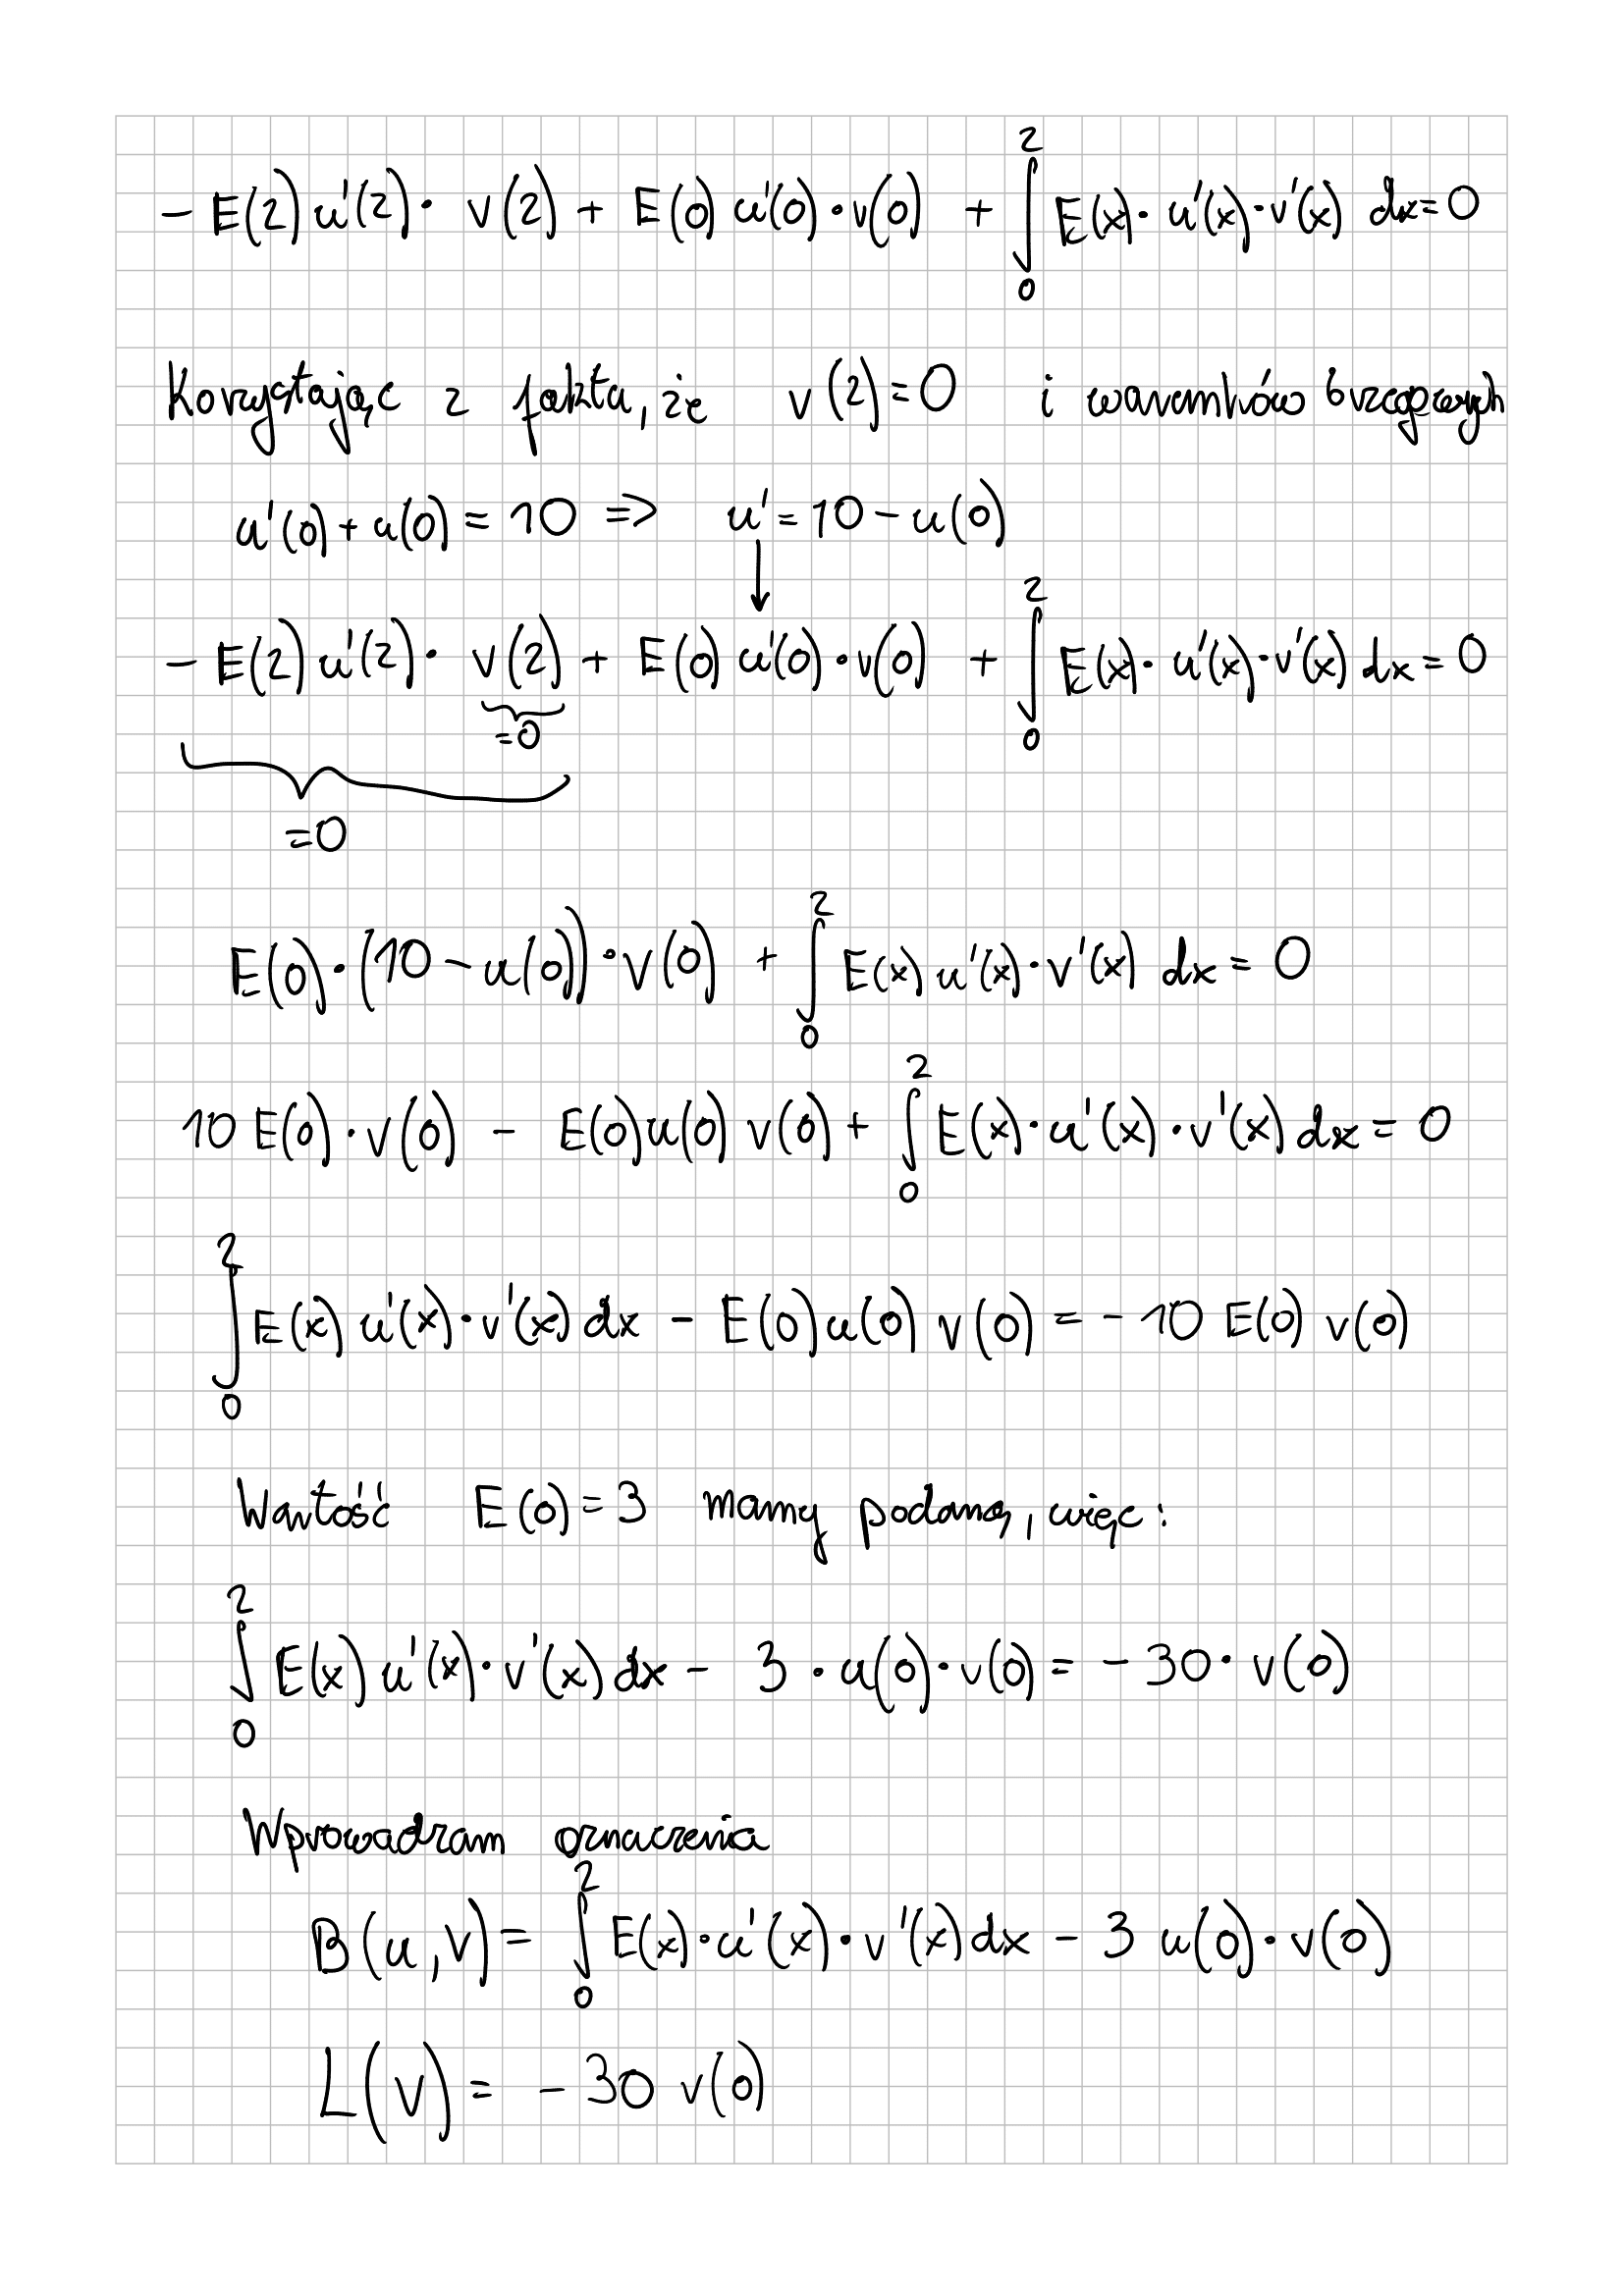 − E(2) u'(2) · v(2) + E(0) u'(0) · v(0) + ∫₀² E(x) · u'(x) · v'(x) dx = 0
Korzystając z faktu, że v(2) = 0 i warunków brzegowych
u'(0) + u(0) = 10 => u' = 10 − u(0)
↓
− E(2) u'(2) · v(2) + E(0) u'(0) · v(0) + ∫₀² E(x) · u'(x) · v'(x) dx = 0
=0
=0
E(0) · (10 − u(0)) · v(0) + ∫₀² E(x) u'(x) · v'(x) dx = 0
10 E(0) · v(0) − E(0) u(0) v(0) + ∫₀² E(x) · u'(x) · v'(x) dx = 0
∫₀² E(x) u'(x) · v'(x) dx − E(0) u(0) v(0) = − 10 E(0) v(0)
Wartość E(0) = 3 mamy podaną, więc:
∫₀² E(x) u'(x) · v'(x) dx − 3 · u(0) · v(0) = − 30 · v(0)
Wprowadzam oznaczenia
B(u,v) = ∫₀² E(x) · u'(x) · v'(x) dx − 3 u(0) · v(0)
L(v) = − 30 v(0)